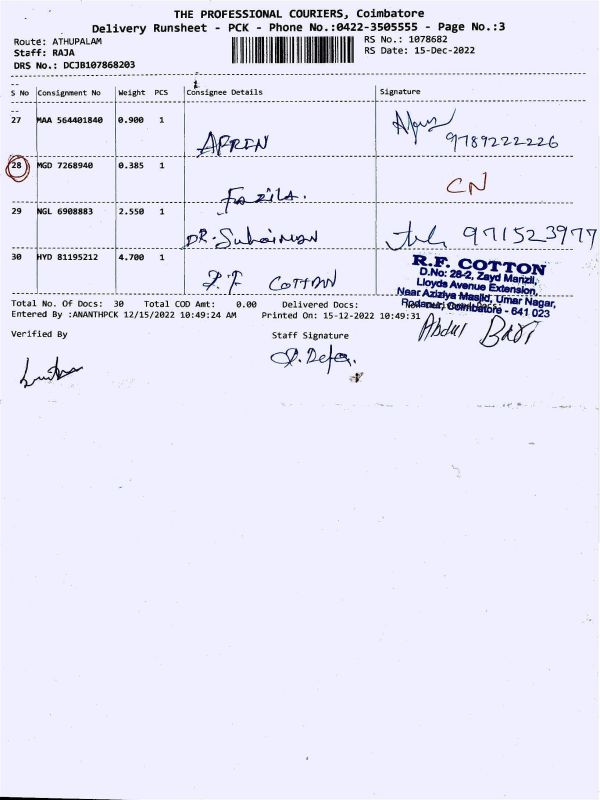 THE PROFESSIONAL COURIERS, Coimbatore
Delivery Runsheet - PCK - Phone No.:0422-3505555 - Page No.:3
Route: ATHUPALAM
RS No.: 1078682
Staff: RAJA
RS Date: 15-Dec-2022
DRS No.: DCJB107868203
S No Consignment No Weight PCS Consignee Details Signature
27 MAA 564401840 0.900 1
AFRIN 9789222226
28 MGD 7268940 0.385 1
Fazila. CN
29 NGL 6908883 2.550 1
DR. Suhaiman 971523977
30 HYD 81195212 4.700 1
R.F COTTON
R.F. COTTON
D.No: 28-2, Zayd Manzil,
Lloyds Avenue Extension,
Near Aziziya Masjid, Umar Nagar,
Coimbatore - 641 023
Total No. Of Docs: 30 Total COD Amt: 0.00 Delivered Docs:
Entered By :ANANTHPCK 12/15/2022 10:49:24 AM Printed On: 15-12-2022 10:49:31
Abdul Bari
Verified By Staff Signature